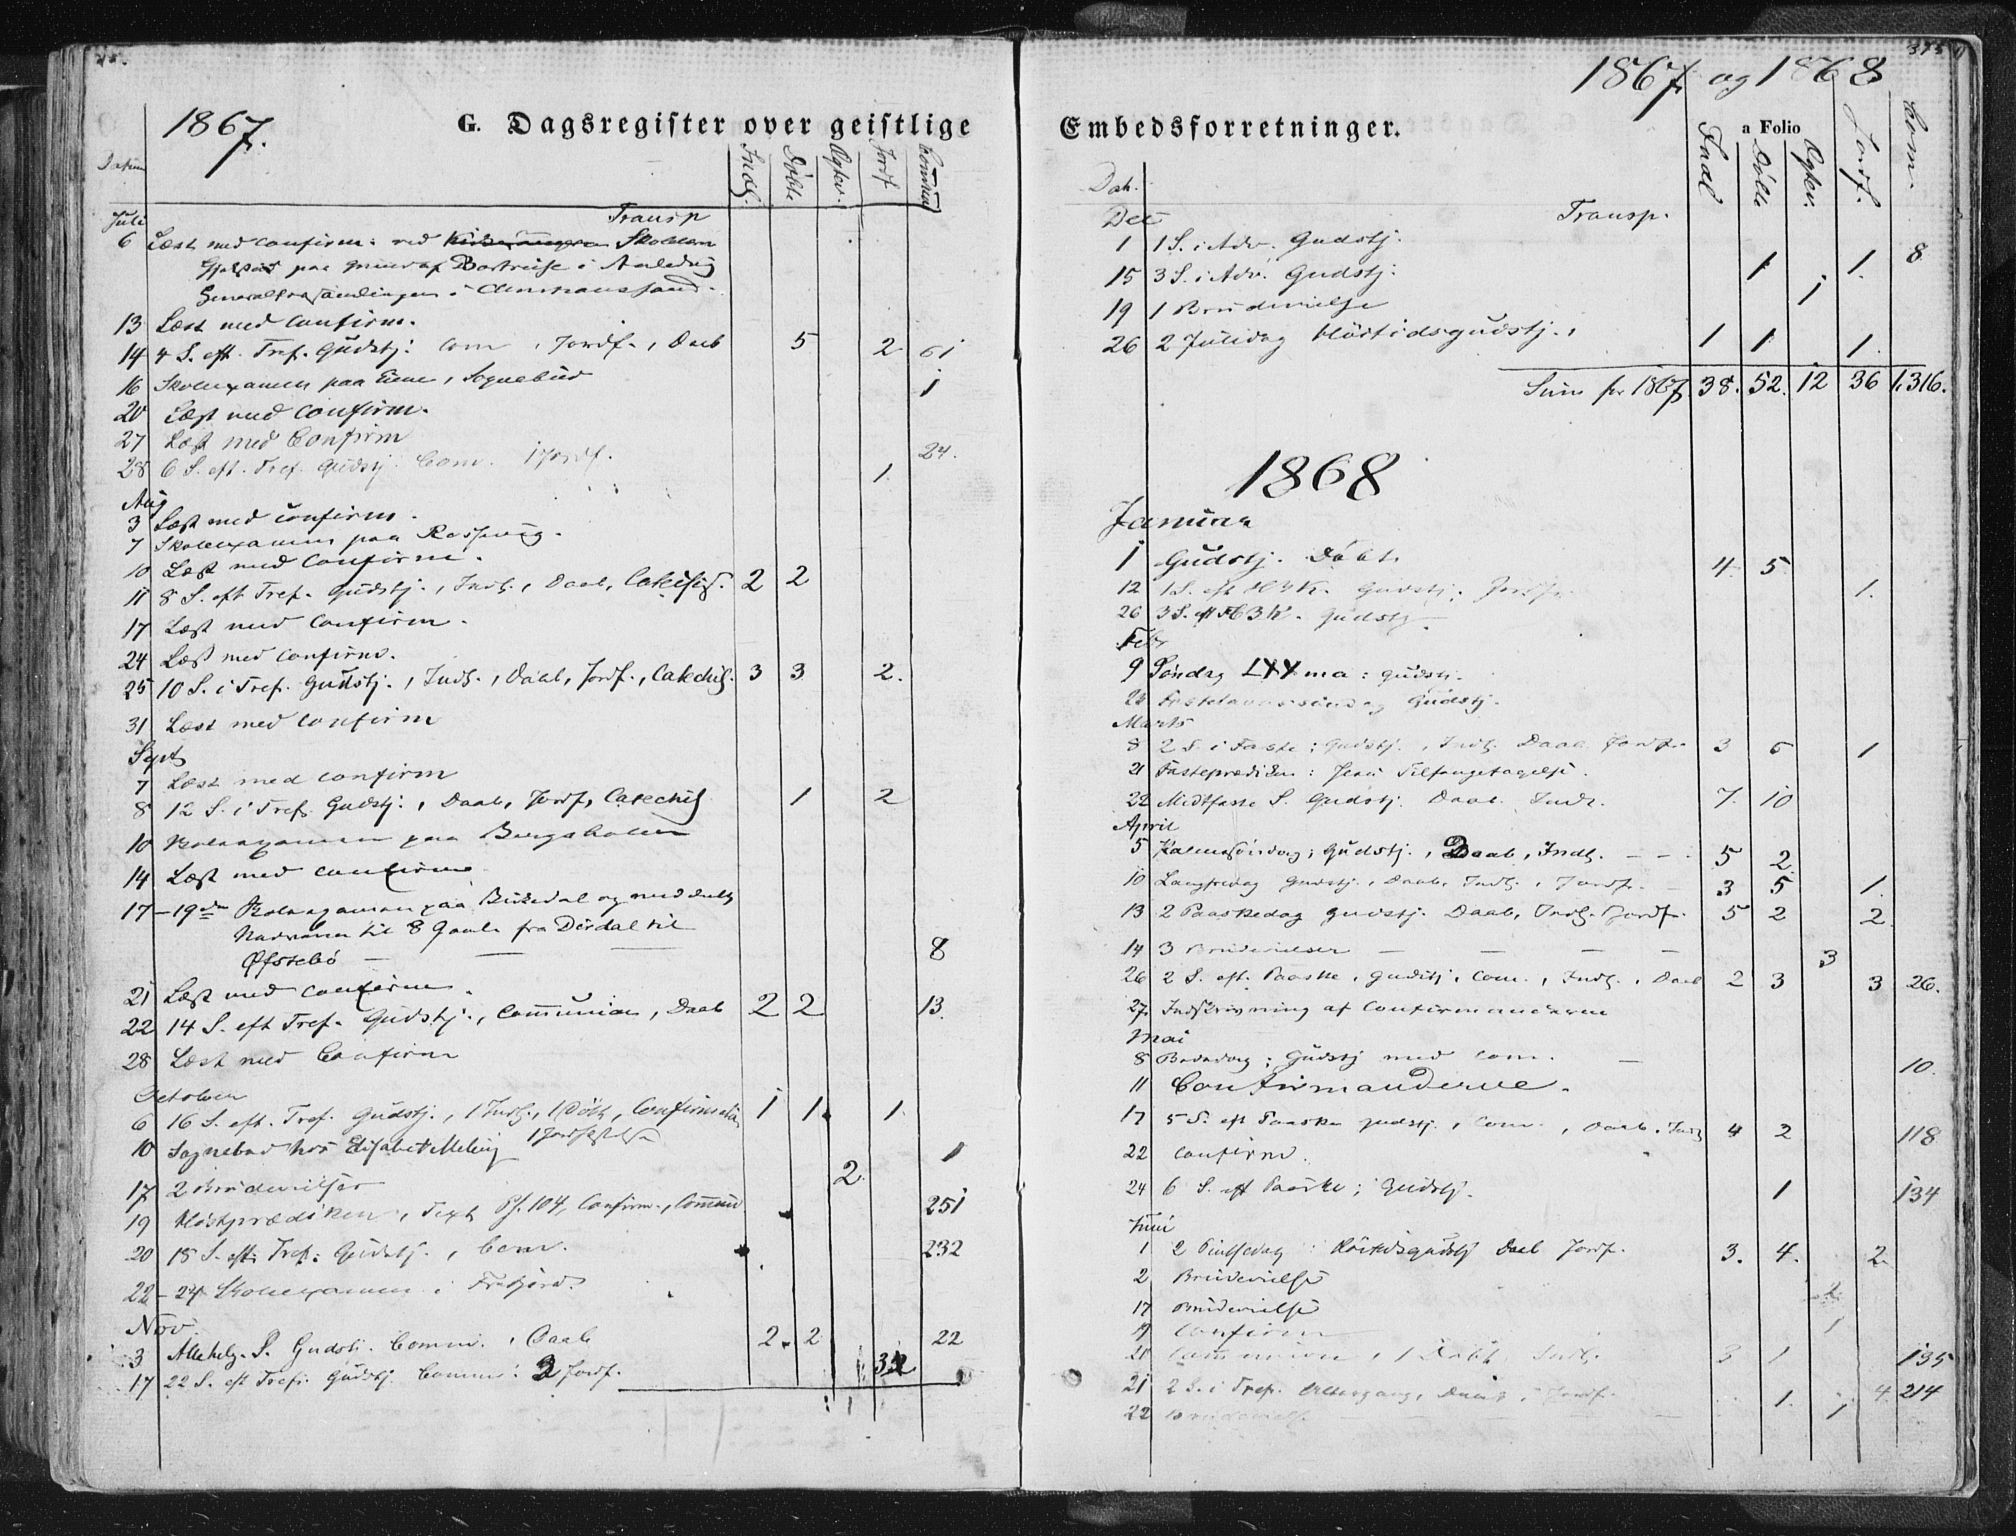 1867.
G. Dagsregister over geistlige
Datum
Indl. Døbte Ogtev. Jordf. Commun
Juli Transp
6 Læst med Confirm: ved Skolen
paa Grund af Bortreise i
Generalforsamlingen i Christianssand.
13 Læst med Confirm.
14 4 S. eft. Tref. Gudstj: Com , Jordf., Daab 5 2 61
16 Skoleexamen paa Eiene, Sognebud 1
20 Læst med Confirm.
27 Læst med Confirm
28 6 S. eft. Tref. Gudstj. Com. 1 Jordf. 1. 24.
Aug
3 Læst med Confirm.
7 Skoleexamen paa
10 Læst med Confirm.
11 8 S. eft Tref. Gudstj., Indl., Daab, Catechis. 2 2
17 Læst med Confirm.
24 Læst med Confirm.
25 10 S. i Tref. Gudstj., Indl., Daab, Jordf., Catechis. 3 3 2.
31 Læst med Confirm
Sept
7 Læst med Confirm
8 12 S. i Tref. Gudstj., Daab, Jordf, Catechis 1 2
10 Skoleexamen paa
14 Læst med Confirm
17-19de Skoleexamen paa Birkedal og meddelt
til 8 fra Dirdal til
Øfstebø — — 8
21 Læst med Confirm.
22 14 S. eft Tref. Gudstj., Communion, Daab 2 2 13.
28 Læst med Confirm
October
6 16 S. eft. Tref. Gudstj., 1 Indl., 1 Døbt, Confirmation 1 1. 1.
1 Jordfæstelse
10 Sognebud hos Elisabet Meling 1
17 2 Brudevielser 2.
19 Høstprædiken, Text Ps. 104, Confirm., Commun 251
20 18 S. eft. Tref. Gudstj., Com. 232
22-24 Skoleexamen i Frafjord.
Nov.
3 Allehelg. S. Gudstj. Comm. , Daab 2. 2 22
17 22 S. eft Tref. Gudstj. Comm: 3 Jordf.
1867 og 1868
Embedsforretninger.
a Folio
Dat. Indl Døbte Ogtev. Jordf. Com.
Dec Transp.
1 1 S. i Adv. Gudstj. 8
15 3 S. i Adv. Gudstj. 1 1.
19 1 Brudevielse 1
26 2 Juledag Høitidsgudstj., 1 1 1.
Sum for 1867 38. 52. 12 36 1,316.
1868
Januar
1 Gudstj. Døbt. 4 5
12 1 S. eft H 3 K. Gudstj. Jordf. 1.
26 3 S. eft H 3 K. Gudstj
Febr
9 Søndag LXXma: Gudstj.
23 Fastelavnssøndag Gudstj.
Marts
8 2 S. i Faste: Gudstj., Indl. Daab Jordf. 3 6 1
21 Fasteprædiken: Jesu Tilfangetagelse.
22 Midtfaste S. Gudstj. Daab. Indl. 7. 10
April
5 Palmesøndag; Gudstj., Daab, Indl. — — . 5 2.
10 Langfredag Gudstj., Daab, Indl., Jordf. — 3 5 1.
13 2 Paaskedag Gudstj. Daab, Indl. Jordf. 5 2 2.
14 3 Brudevielser — — — — 3
26 2 S. eft. Paaske, Gudstj, Com., Indl., Daab 2 3 3 26.
27 Indskrivning af Confirmanderne
Mai
8 Bededag; Gudstj med Com. — 10.
11 Confirmanderne.
17 5 S. eft Paaske Gudstj., Com. , Daab, Indl 4 2 118
22 Confirm.
24 6 S. eft Paaske; Gudstj. 1 134
Juni
1 2 Pintsedag: Høitidsgudstj Daab Jordf. 3. 4. 2.
2 Brudevielse 2
17 Brudevielse
19 Confirm 1
20 Communion, 1 Døbt, Indl. 3 1 135
21 2 S. i Tref. Altergang, Daab, Jordf. 1. 4. 214
22 Brudevielse 1